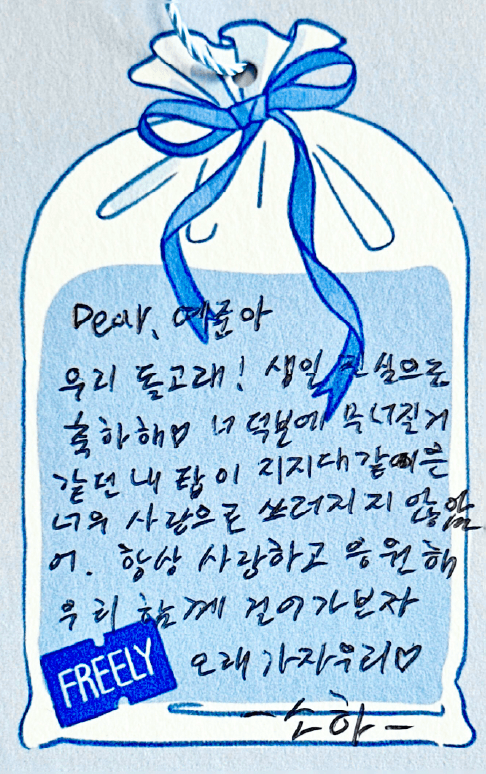 Dear, 예준아
우리 돌고래! 생일 진심으로
축하해♡ 너 덕분에 무너질거
같던 내 탑이 지지대같은
너의 사랑으로 쓰러지지 않았
어. 항상 사랑하고 응원해
우리 함께 걸어가보자
오래가자우리♡
FREELY
-소하-